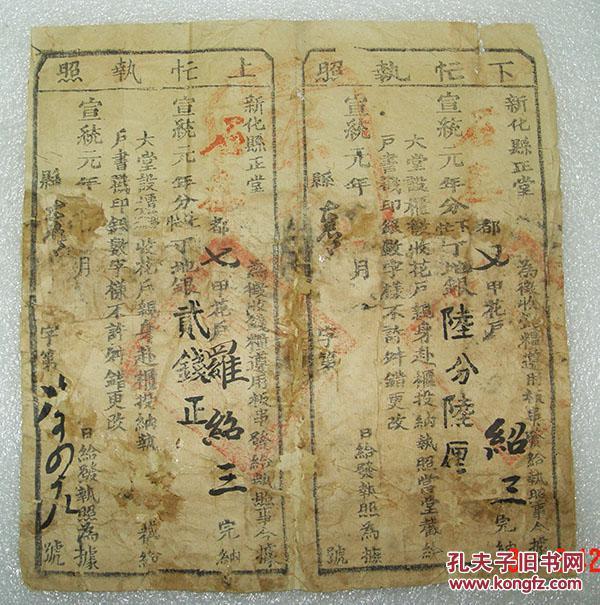 下忙執照
新化縣正堂 為徵收錢糧遵用板串發給執照事今據
都七甲花戶 紹三完納
宣統元年分下忙丁地銀陸分陸厘
大堂設櫃徵收花戶親身赴櫃投納執照當堂截給
戶書戳印銀數字樣不許舛錯更改
宣統元年 月 日給發執照為據
縣 字第 號
上忙執照
新化縣正堂 為徵收錢糧遵用板串發給執照事今據
都七甲花戶羅紹三完納
宣統元年分上忙丁地銀貳錢正
大堂設櫃徵收花戶親身赴櫃投納執 截給
戶書戳印銀數字樣不許舛錯更改
宣統元年 月 日給發執照為據
縣 字第 號
孔夫子旧书网
www.kongfz.com